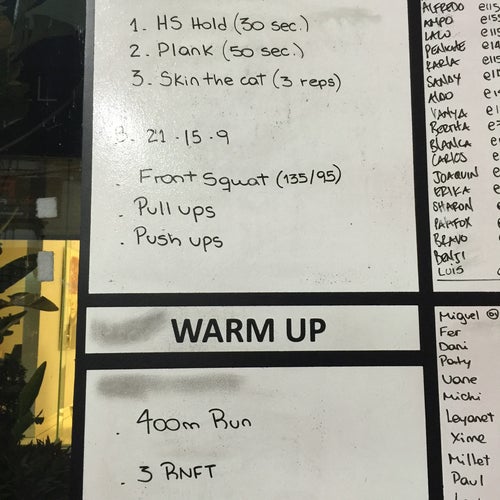 1. HS Hold (30 sec.)
2. Plank (50 sec.)
3. Skin the cat (3 reps)
B. 21 . 15 . 9
. Front Squat (135/95)
. Pull ups
. Push ups
WARM UP
. 400m Run
. 3 RNFT
ALFREDO
AMPO
LALU
KARLA
SANDY
ALDO
VANYA
BERTHA
BLANCA
CARLOS
JOAQUIN
ERIKA
SHARON
BRAVO
BENJI
LUIS
Miguel
Fer
Dani
Paty
Vane
Michi
Leyanet
Xime
Millet
Paul